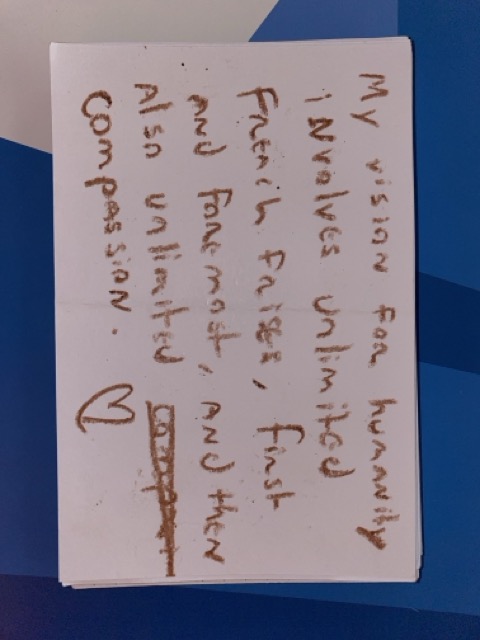 My vision for humanity
involves unlimited
French fries, first
and foremost, and then
Also unlimited
compassion. ♡